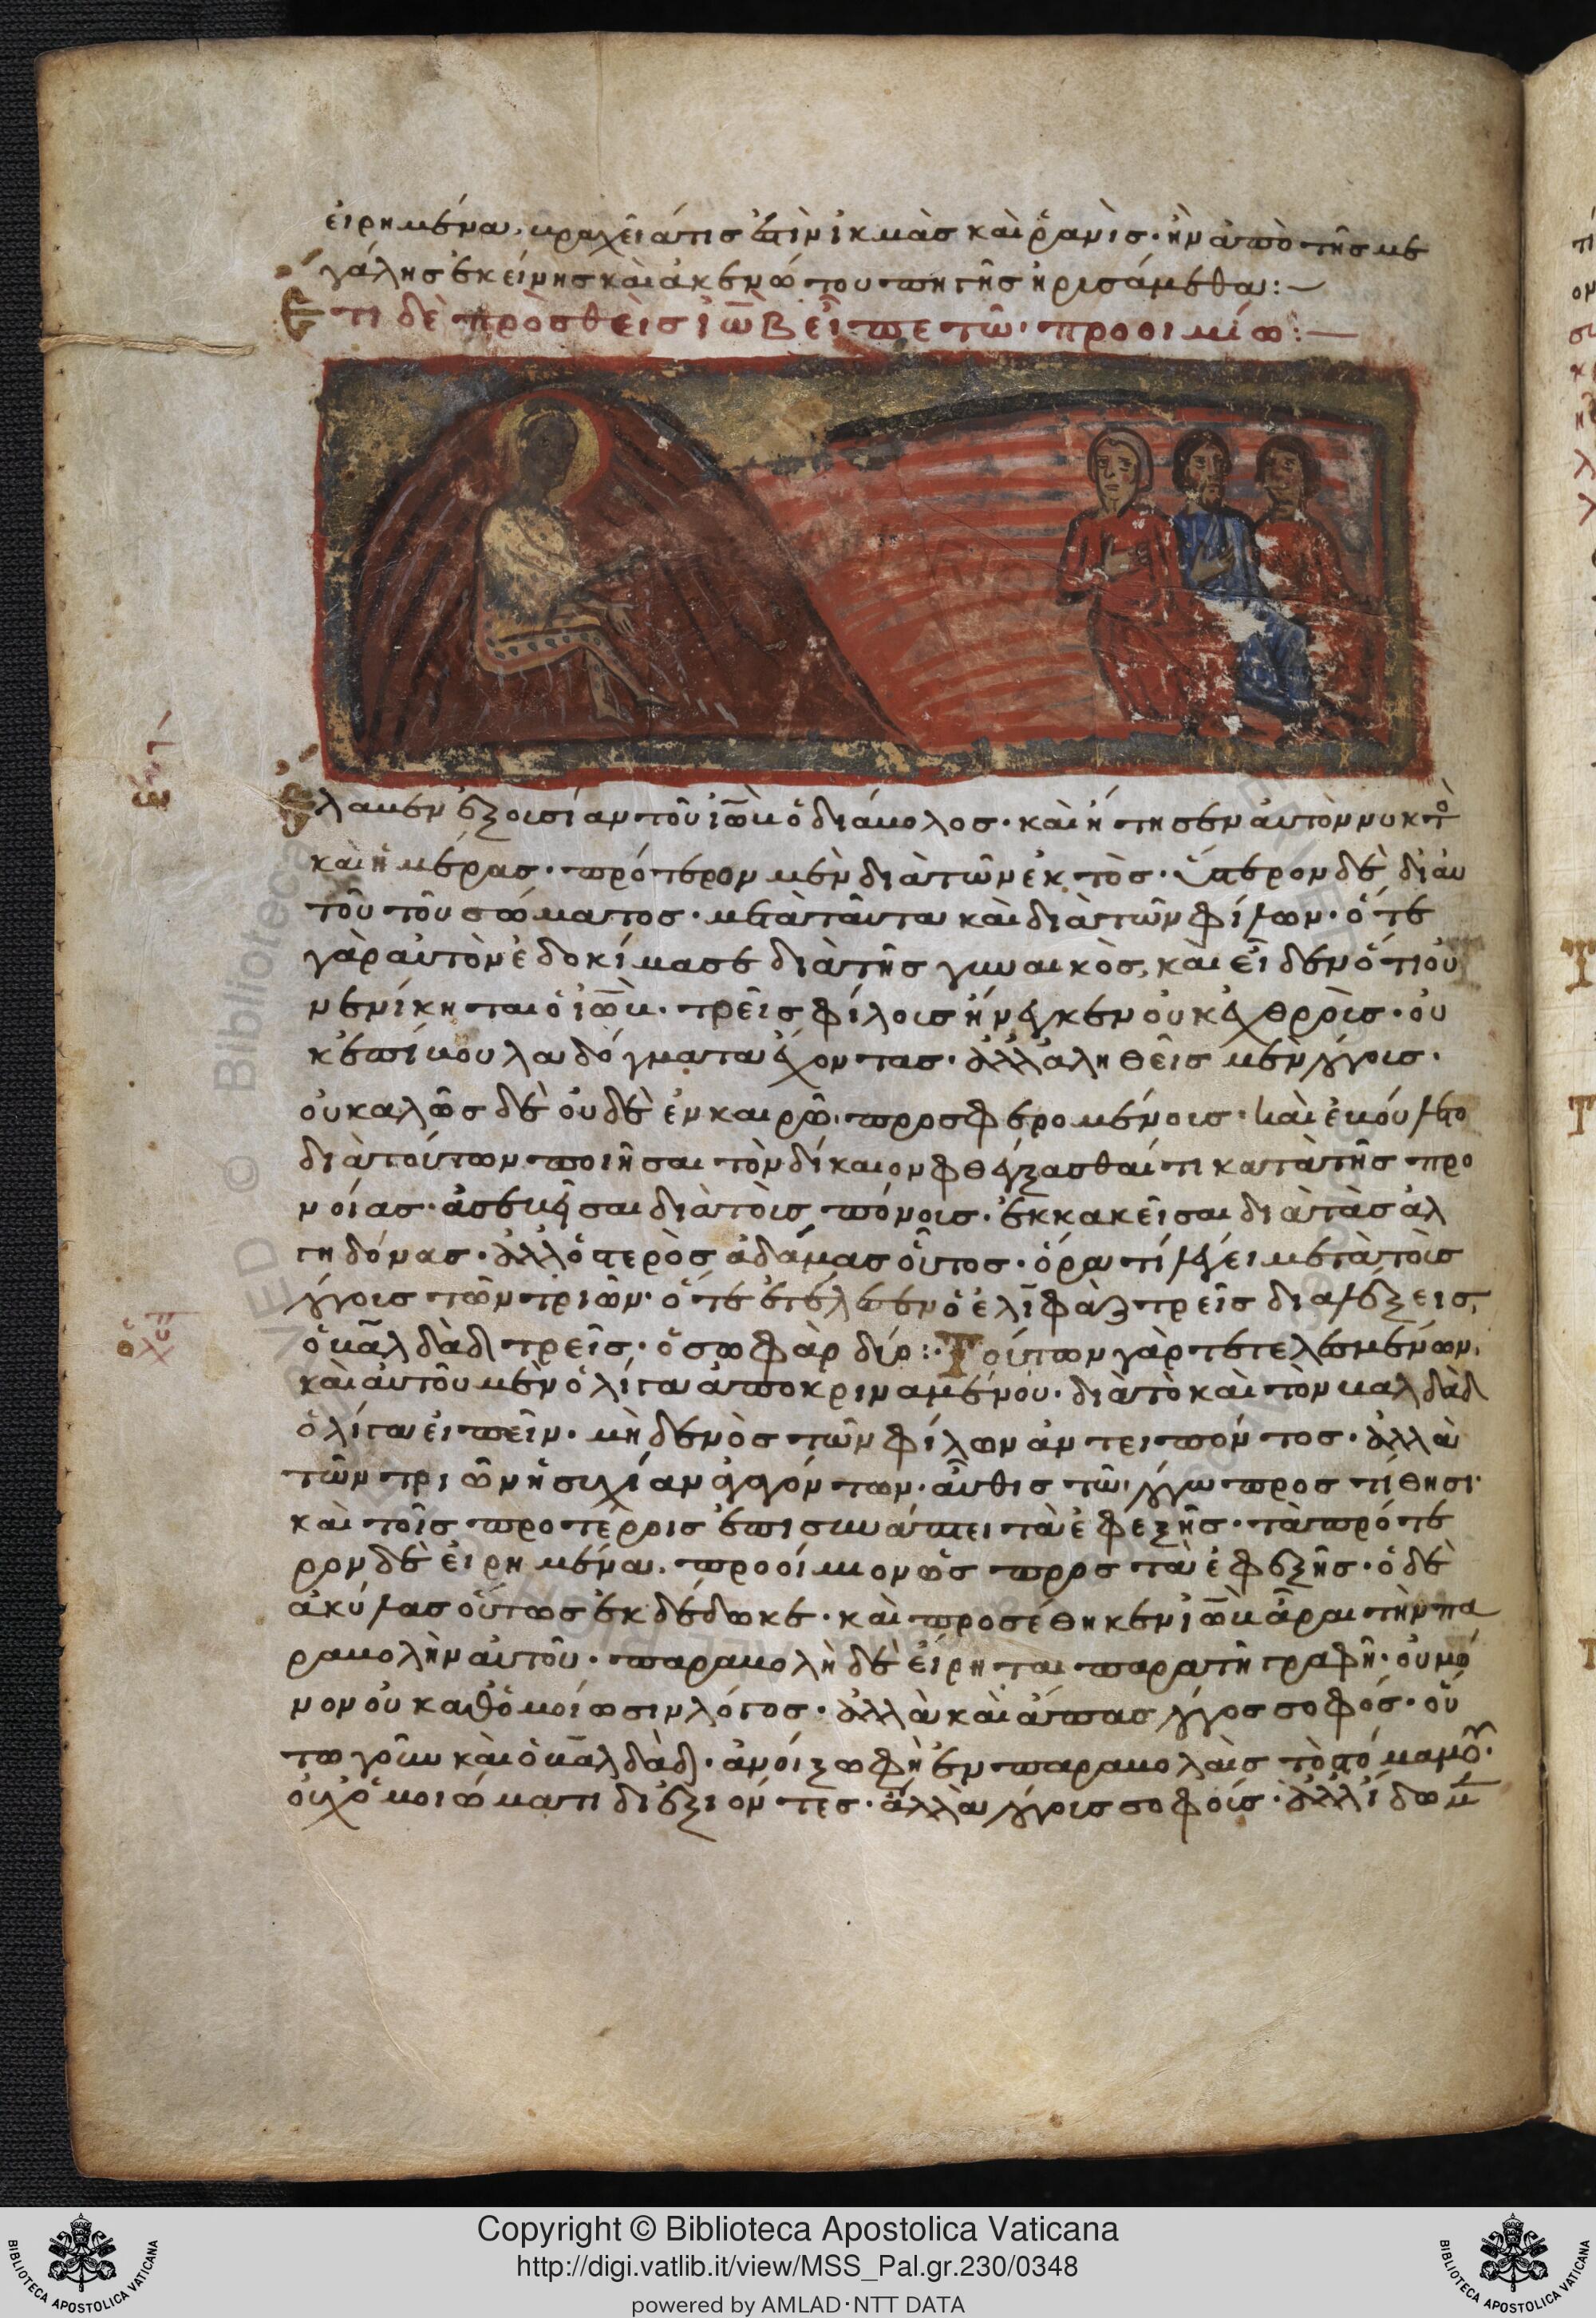 εἰρημένα, βραχεῖά τις ἐστὶν ἰκμὰς καὶ ῥανὶς· ἣν ἀπὸ τῆς με
γάλης ἐκείνης καὶ ἀκενώτου πηγῆς ἠρυσάμεθα:
Ἔτι δὲ προσθεὶς ἰὼβ εἶπε τῶ προοιμίω:
Ἔλαβεν ἐξουσίαν τοῦ ἰὼβ ὁ διάβολος· καὶ ἤτησεν αὐτὸν νυκτὸ
καὶ ἡμέρας· πρότερον μὲν διὰ τῶν ἐκτὸς· ὕστερον δὲ δι' αὐ
τοῦ τοῦ σώματος· μετὰ ταῦτα καὶ διὰ τῶν φίλων· ὅτε
γὰρ αὐτὸν ἐδοκίμασε διὰ τῆς γυναικὸς, καὶ εἶδεν ὅτι οὐ
νενίκηται ὁ ἰὼβ· τρεῖς φίλους ἤνεγκεν οὐκ ἐχθροὺς· οὐ
κ ἐπίβουλα δόγματα ἔχοντας· ἀλλ' ἀληθεῖς μὲν λόγους·
οὐ καλῶς δὲ οὐδὲ ἐν καιρῶ προσφερομένους· καὶ ἐβούλετο
διὰ τούτων ποιῆσαι τὸν δίκαιον φθέγξασθαί τι κατὰ τῆς προ
νοίας· ἀσεβῆσαι διὰ τοὺς πόνους· ἐκκακεῖσαι διὰ τὰς ἀλ
γηδόνας· ἀλλ' ὁ στερρὸς ἀδάμας οὗτος· ὅρα τί λέγει μετὰ τοὺς
λόγους τῶν τριῶν· ὅτε ἐτέλεσεν ὁ ἐλιφὰζ τρεῖς διαλέξεις,
ὁ βαλδὰδ τρεῖς· ὁ σωφὰρ δύο: Τούτων γὰρ τετελεσμένων,
καὶ αὐτοῦ μὲν ὀλίγα ἀποκριναμένου· διὰ τὸ καὶ τὸν βαλδὰδ
ὀλίγα εἰπεῖν· μηδενὸς τῶν φίλων ἀντειπόντος· ἀλλὰ
τῶν τριῶν ἡσυχίαν ἀγόντων· αὖθις τῶ λόγω προστίθησι·
καὶ τοῖς προτέροις ἐπισυνάπτει τὰ ἐφεξῆς· τὰ πρότε
ρον δὲ εἰρημένα, προοίμιον ὡς πρὸς τὰ ἐφεξῆς· ὁ δὲ
ἀκύλας οὕτως ἐκδέδωκε· καὶ προσέθηκεν ἰὼβ ἆραι τὴν πα
ραβολὴν αὐτοῦ· παραβολὴ δὲ εἴρηται παρὰ τῆ γραφῆ· οὐ μό
νον οὐ καθ' ὁμοίωσιν λόγος· ἀλλὰ καὶ ἅπας λόγος σοφός· οὕ
τω γοῦν καὶ ὁ βαλδὰδ· ἀνοίξω φὴ ἐν παραβολαῖς τὸ στόμα μου·
οὐχ ὁμοιώματι διεξιόντες· ἀλλὰ λόγοις σοφοῖς· ἀλλ' ἴδωμεν
Copyright © Biblioteca Apostolica Vaticana
http://digi.vatlib.it/view/MSS_Pal.gr.230/0348
powered by AMLAD·NTT DATA
BIBLIOTECA APOSTOLICA VATICANA
BIBLIOTECA APOSTOLICA VATICANA